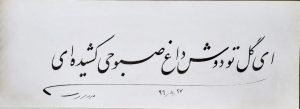 ای گل تو دوش داغ صبوحی کشیده‌ای